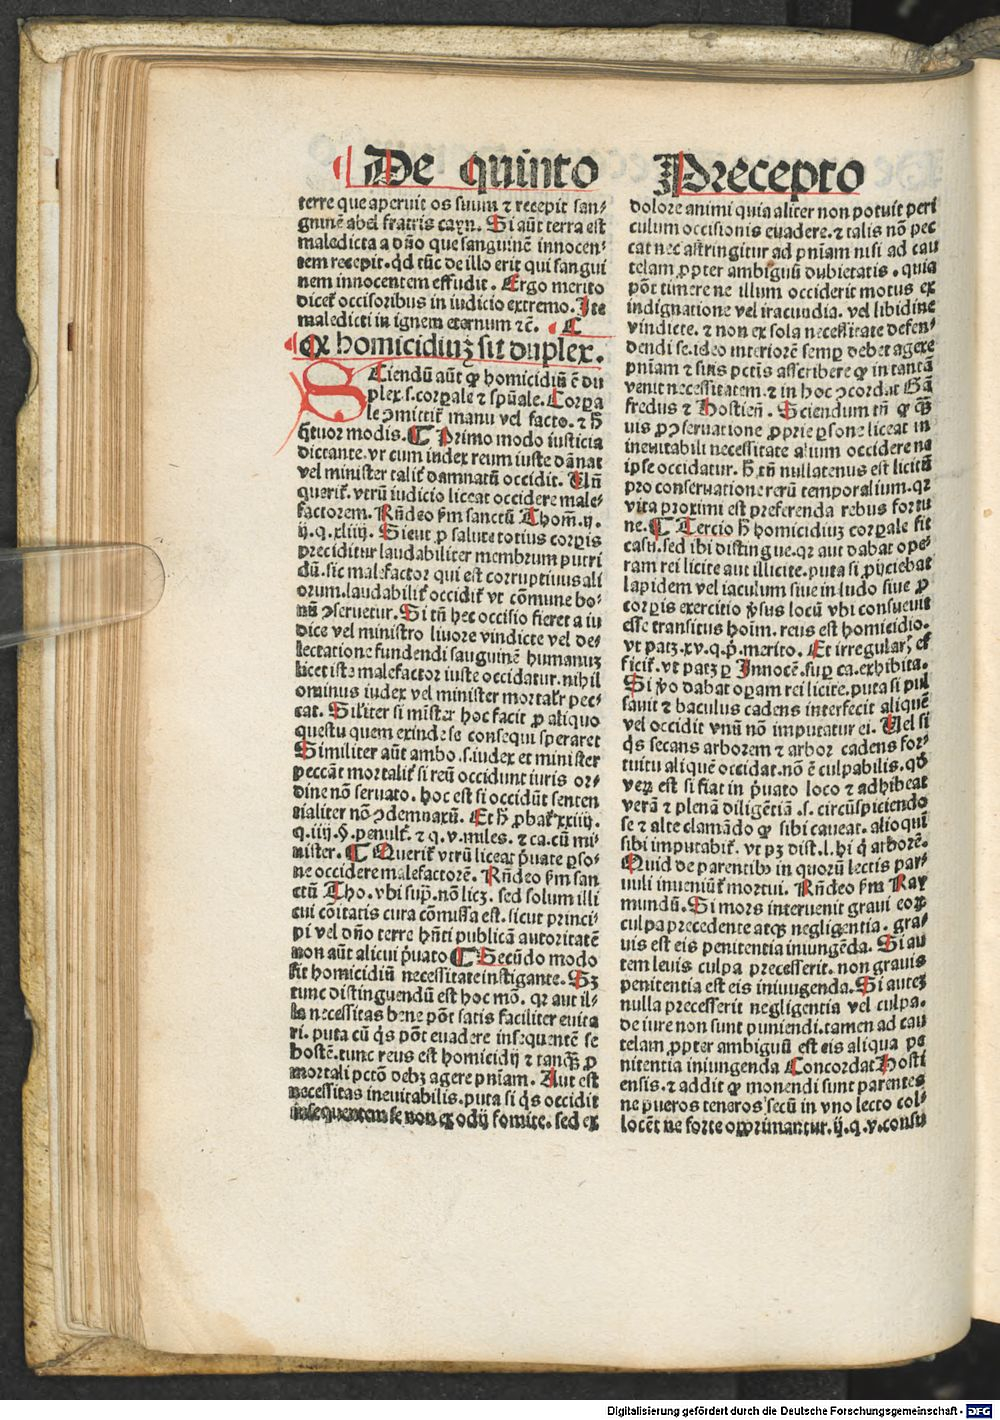 De quinto Precepto
terre que aperuit os suum ⁊ recepit san⸗
guinē abel fratris cayn. Si aūt terra est
maledicta a dn̄o que sanguinē innocen⸗
tem recepit. qd̓ tūc de illo erit qui sangui
nem innocentem effudit. Ergo merito
dicet̄ occisoribus in iudicio extremo. Ite
maledicti in ignem eternum ⁊c̄. ¶
Q homicidiuꝫ sit duplex.
SCiendū aūt ꝙ homicidiū ē du
plex .s. corꝑale ⁊ spūale. Corꝑa
le ↄmittit̄ manu vel facto. ⁊ h̄
q̄tuor modis. ¶ Primo modo iusticia
dictante. vt cum iudex reum iuste dānat
vel minister talit̄ damnatū occidit. Un̄
querit̄. vtrū iudicio liceat occidere male⸗
factorem. Rn̄deo ẜm sanctū Thom̄. ij.
ij. q. xliiij. Sicut ꝓ salute totius corꝑis
preciditur laudabiliter membrum putri
dū. sic malefactor qui est corruptiuus ali
orum. laudabilit̄ occidit̄ vt cōmune bo⸗
nū ↄseruetur. Si tn̄ hec occisio fieret a iu
dice vel ministro liuore vindicte vel de⸗
lectatione fundendi sanguinē humanuꝫ
licet iste malefactor iuste occidatur. nihil
ominus iudex vel minister mortalr̄ pec⸗
cat. Silīter si mīster hoc facit ꝓ aliquo
questu quem exinde se consequi speraret
Similiter aūt ambo .s. iudex et minister
peccāt mortalit̄ si reū occidunt iuris or⸗
dine nō seruato. hoc est si occidūt senten
tialiter nō ↄdemnatū. Et h̄ ꝓbat̄ xxiij.
q. iiij. §. penult̄. ⁊ q. v. miles. ⁊ ca. cū mi⸗
nister. ¶ Querit̄ vtrū liceat p̄uate ꝑso⸗
ne occidere malefactorē. Rn̄deo ẜm san
ctū Tho. vbi sup̄. nō licꝫ. sed solum illi
cui cōitatis cura cōmissa est. sicut princi⸗
pi vel dn̄o terre hn̄ti publicā autoritatē
non aūt alicui p̄uato ¶ Secūdo modo
fit homicidiū necessitate instigante. Sꝫ
tunc distinguendū est hoc mō. qꝛ aut il⸗
la necessitas bene pōt satis faciliter euita
ri. puta cū q̇s pōt euadere insequentē se
hostē. tunc reus est homicidij ⁊ tanq̄ꝫ ꝓ
mortali pctō debꝫ agere pn̄iam. Aut est
necessitas ineuitabilis. puta si q̇s occidit
insequentem se non ex odij fomite. sed ex
dolore animi quia aliter non potuit peri
culum occisionis euadere. ⁊ talis nō pec
cat nec astringitur ad pn̄iam nisi ad cau
telam ꝓpter ambiguū dubietatis. quia
pōt timere ne illum occiderit motus ex
indignatione vel iracundia. vel libidine
vindicte. ⁊ non ex sola necessitate defen⸗
dendi se. ideo interiorē semꝑ debet agere
pn̄iam ⁊ suis pctīs asscribere ꝙ in tantā
venit necessitatem. ⁊ in hoc ↄcordat Gā
fredus ⁊ Hostien̄. Sciendum tn̄ ꝙ q̄ꝫ
uis ꝓ ↄseruatione ꝓprie ꝑsone liceat in
ineuitabili necessitate alium occidere ne
ipse occidatur. h̄ tn̄ nullatenus est licitū
pro conseruatione rerū temporalium. qꝛ
vita proximi est preferenda rebus fortu
ne. ¶ Tercio h̄ homicidiuꝫ corꝑale fit
casu. sed ibi distingue. qꝛ aut dabat ope⸗
ram rei licite aut illicite. puta si ꝓijciebat
lapidem vel iaculum siue in ludo siue ꝓ
corꝑis exercitio ꝟsus locū vbi consueuit
esse transitus hoīm. reus est homicidio.
vt patꝫ. xv. q. p̄. merito. Et irregularꝭ ef
ficit̄. vt patꝫ ꝑ Innocē. suꝑ ca. exhibita.
Si ꝟo dabat oꝑam rei licite. puta si pul
sauit ⁊ baculus cadens interfecit aliquē
vel occidit vnū nō imputatur ei. Uel si
q̇s secans arborem ⁊ arbor cadens for⸗
tuitu aliquē occidat. nō ē culpabilis. qd̓
veꝝ est si fiat in p̄uato loco ⁊ adhibeat
verā ⁊ plenā diligētiā .s. circūspiciendo
se ⁊ alte clamādo ꝙ sibi caueat. alioquī
sibi imputabit̄. vt pꝫ dist. l. hi q̇ arborē.
Quid de parentibꝰ in quorū lectis par⸗
uuli inueniūt̄ mortui. Rn̄deo ẜm Ray
mundū. Si mors interuenit graui eoꝝ
culpa precedente atqꝫ negligentia. gra⸗
uis est eis penitentia iniungēda. Si au
tem leuis culpa precesserit. non grauis
penitentia est eis iniuugenda. Si auteꝫ
nulla precesserit negligentia vel culpa.
de iure non sunt puniendi. tamen ad cau
telam ꝓpter ambiguū est eis aliqua pe
nitentia iniungenda Concordat Hosti
ensis. ⁊ addit ꝙ monendi sunt parentes
ne pueros teneros secū in vno lecto col⸗
locēt ne forte opprimantur. ij. q. v. consu
Digitalisierung gefördert durch die Deutsche Forschungsgemeinschaft - DFG